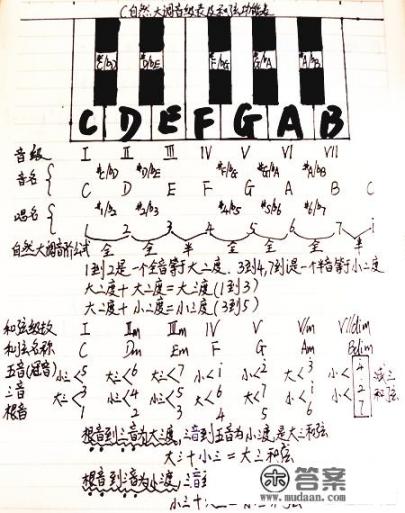 C自然大调音级表及和弦功能表
#C/bD #D/bE #F/bG #G/bA #A/bB
C D E F G A B
音级 I II III IV V VI VII
#C/bD #D/bE #F/bG #G/bA #A/bB
音名 C D E F G A B C
#1/b2 #2/b3 #4/b5 #5/b6 #6/b7
唱名 1 2 3 4 5 6 7 i
自然大调音阶公式 全 全 半 全 全 全 半
1到2是一个全音等于大二度.3到4,7到i是一个半音等于小二度
大二度+大二度=大三度(1到3)
大二度+小二度=小三度(3到5)
和弦级数 I IIm IIIm IV V VIm VIIdim
和弦名称 C Dm Em F G Am Bdim
五音(冠音) 小三<5 大三<6 大三<7 小<i 小<2 大<3 小<4 减三
三音 大三<3 小三<4 小三<5 大<6 大<7 小<i 小<2 和弦
根音 1 2 3 4 5 6 7
根音到三音为大三度,三音到五音为小三度,是大三和弦
大三+小三=大三和弦
根音到三音为小三度,三音
小三+
答案
www.mudaan.com